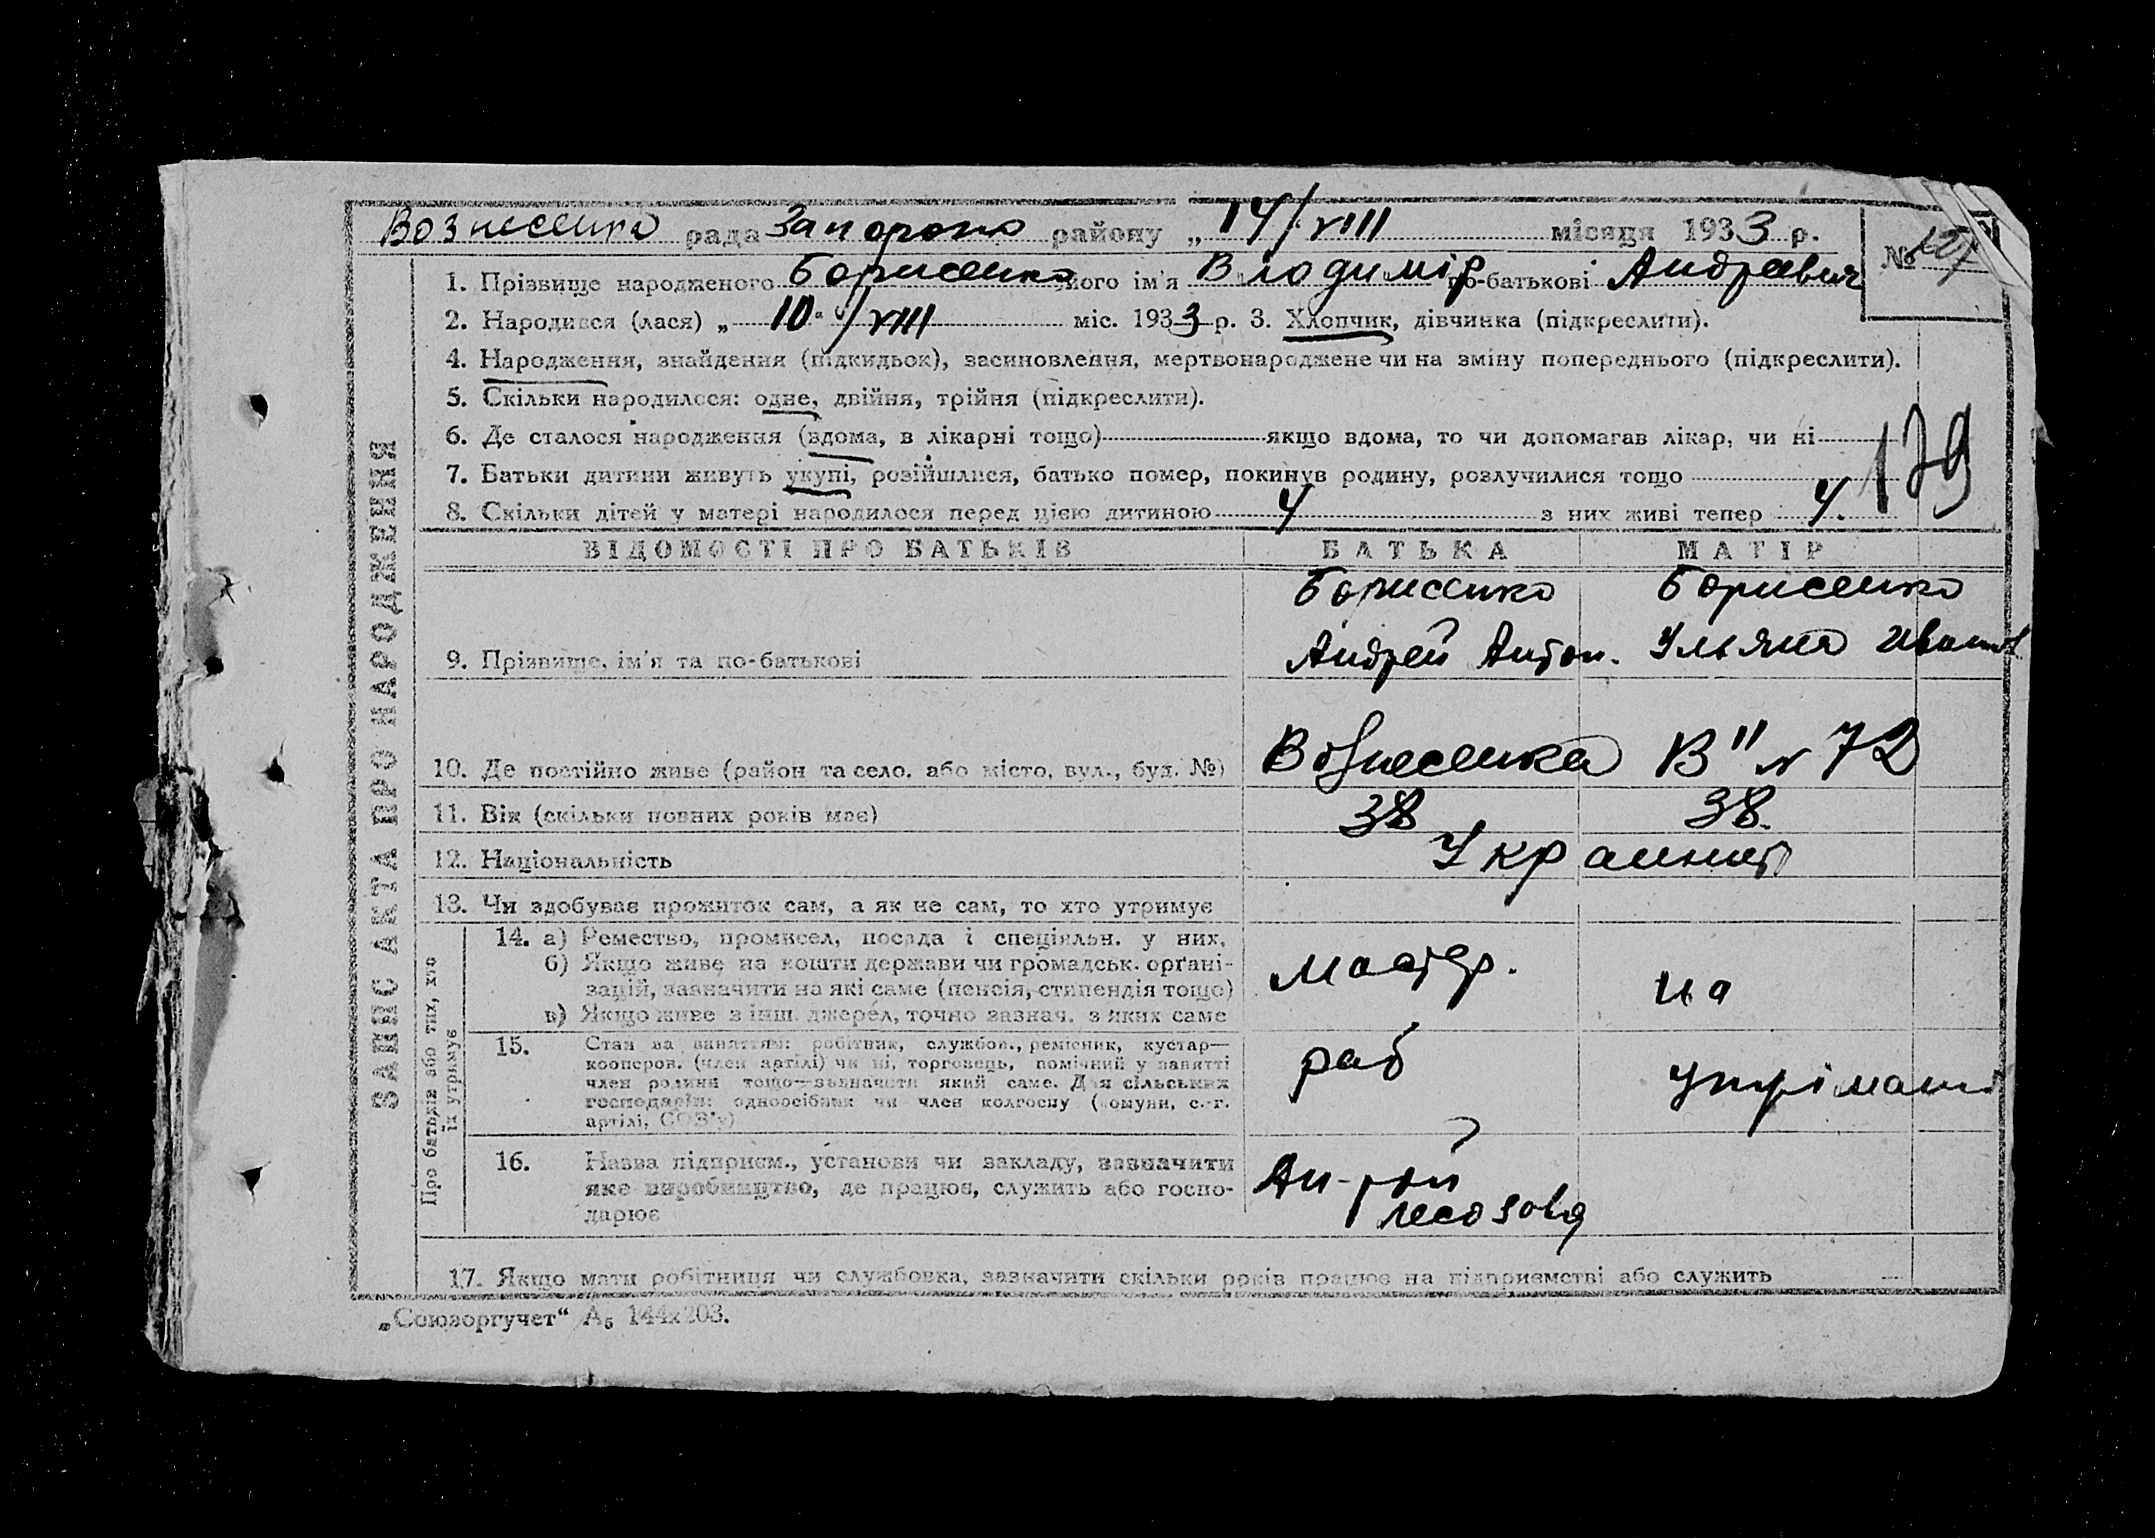 Вознесенка рада Запорож району „ 14/VIII місяця 1933 р.
№
1. Прізвище народженого Борисенко його ім'я Владимір по-батькові Андреевич
2. Народився (лася) „ 10 /VIII міс. 1933 р. 3. Хлопчик, дівчинка (підкреслити).
4. Народження, знайдення (підкидьок), засиновлення, мертвонароджене чи на зміну попереднього (підкреслити).
5. Скільки народилося: одне, двійня, трійня (підкреслити).
6. Де сталося народження (вдома, в лікарні тощо) якщо вдома, то чи допомагав лікар, чи ні
179
7. Батьки дитини живуть укупі, розійшлися, батько помер, покинув родину, розлучилися тощо
8. Скільки дітей у матері народилося перед цією дитиною 4 з них живі тепер 4.
ЗАПИС АКТА ПРО НАРОДЖЕННЯ
ВІДОМОСТІ ПРО БАТЬКІВ БАТЬКА МАТІР
Борисенко Борисенко
9. Прізвище, ім'я та по-батькові Андрей Антон. Ульяна Иванов
10. Де постійно живе (район та село, або місто, вул., буд. №) Вознесенка В" № 72
11. Вік (скільки повних років має) 38 38.
12. Національність Украинцы
13. Чи здобуває прожиток сам, а як не сам, то хто утримує
Про батьків або тих, хто
їх утримує
14. а) Ремество, промисел, посада і спеціяльн. у них,
б) Якщо живе на кошти держави чи громадськ. орґані-
зацій, зазначити на які саме (пенсія, стипендія тощо)
в) Якщо живе з інш. джерел, точно зазнач. з яких саме
мастер. на
15. Стан за заняттям: робітник, службов., ремісник, кустар—
кооперов. (член артілі) чи ні, торговець, помічний у занятті
член родини тощо—зазначити який саме. Для сільських
господарів: одноосібник чи член колгоспу (комуни, с.-г.
артілі, СОЗ'у)
раб утрімані
16. Назва підприєм., установи чи закладу, зазначити
яке виробництво, де працює, служить або госпо-
дарює
лесозавд
17. Якщо мати робітниця чи службовка, зазначити скільки років працює на підприємстві або служить
„Союзоргучет“ А₅ 144x203.